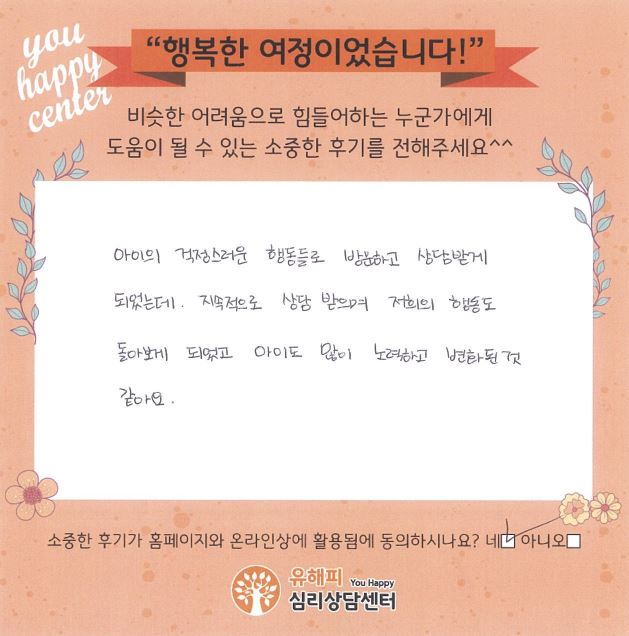 you
happy
center
“행복한 여정이었습니다!”
비슷한 어려움으로 힘들어하는 누군가에게
도움이 될 수 있는 소중한 후기를 전해주세요^^
아이의 걱정스러운 행동들로 방문하고 상담받게
되었는데. 지속적으로 상담 받으며 저희의 행동도
돌아보게 되었고 아이도 많이 노력하고 변화된 것
같아요.
소중한 후기가 홈페이지와 온라인상에 활용됨에 동의하시나요? 네☑ 아니오□
유해피 You Happy
심리상담센터